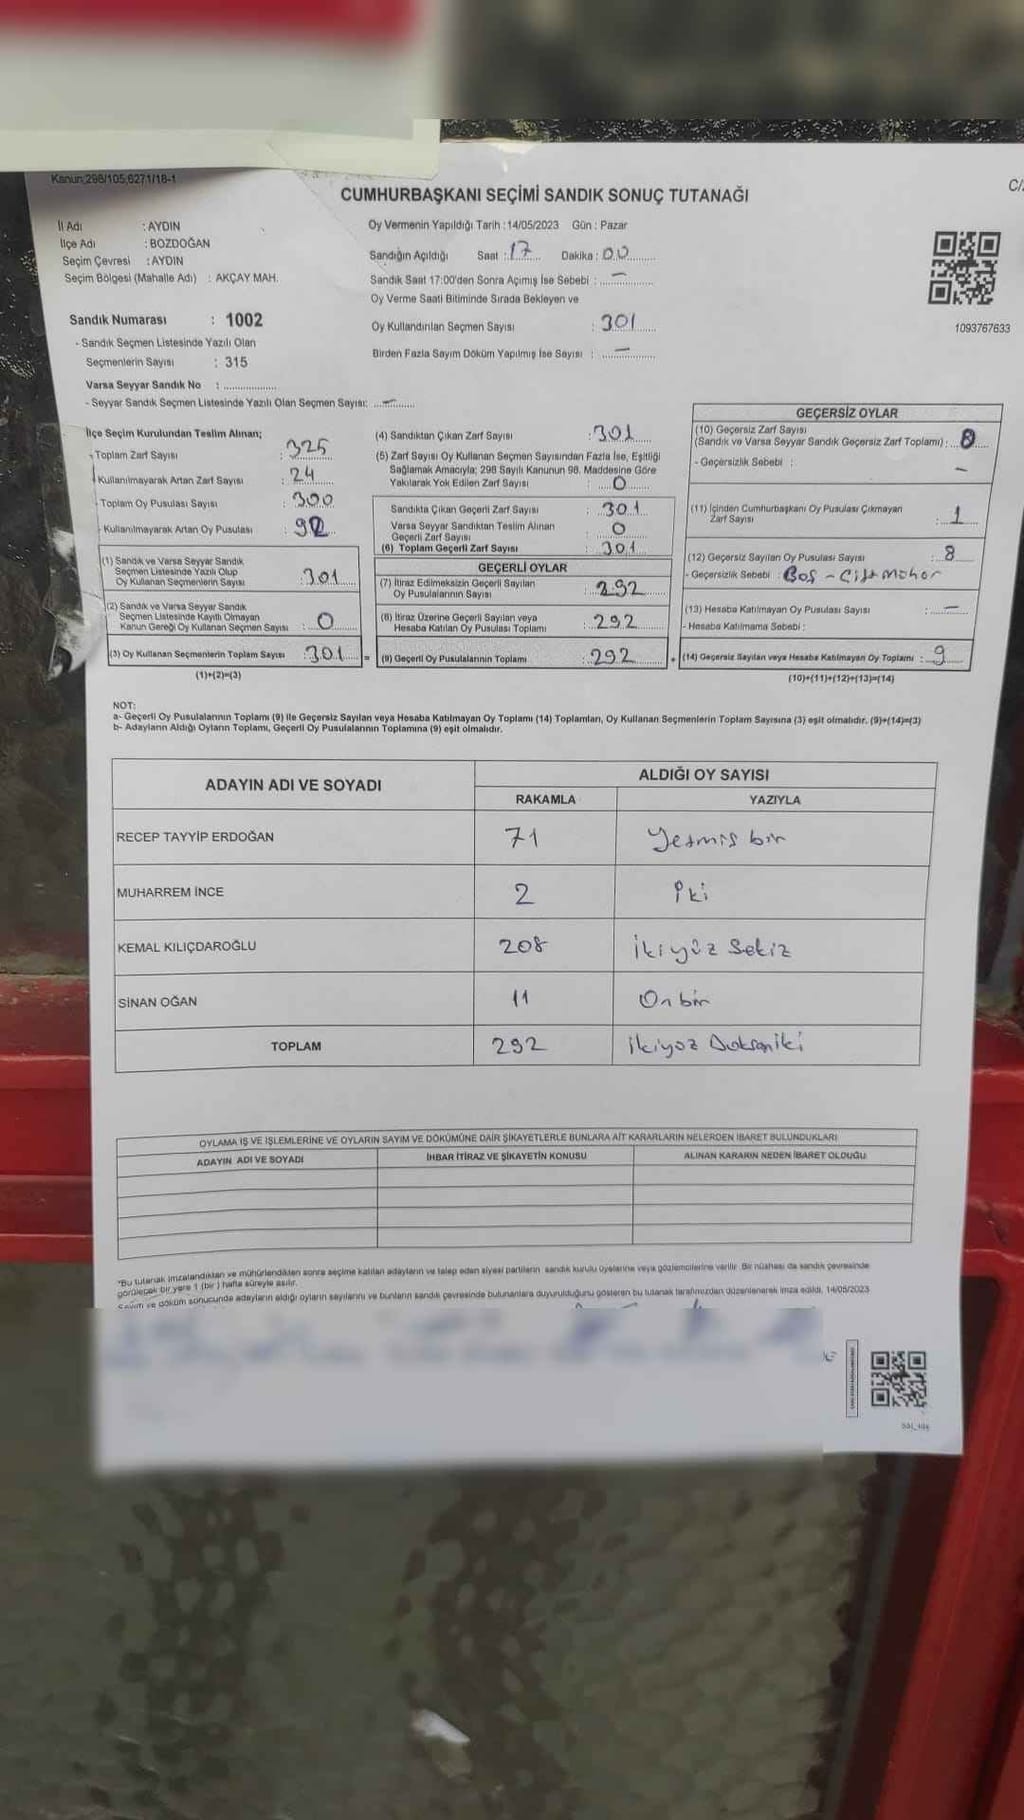 Kanun:298/105;6271/18-1
CUMHURBAŞKANI SEÇİMİ SANDIK SONUÇ TUTANAĞI
C/
İl Adı : AYDIN
İlçe Adı : BOZDOĞAN
Seçim Çevresi : AYDIN
Seçim Bölgesi (Mahalle Adı) : AKÇAY MAH.
Sandık Numarası : 1002
- Sandık Seçmen Listesinde Yazılı Olan
Seçmenlerin Sayısı : 315
Varsa Seyyar Sandık No : ..............
- Seyyar Sandık Seçmen Listesinde Yazılı Olan Seçmen Sayısı: —
Oy Vermenin Yapıldığı Tarih : 14/05/2023 Gün : Pazar
Sandığın Açıldığı Saat : 17 Dakika : 00
Sandık Saat 17:00'den Sonra Açımış İse Sebebi : —
Oy Verme Saati Bitiminde Sırada Bekleyen ve
Oy Kullandırılan Seçmen Sayısı : 301
Birden Fazla Sayım Döküm Yapılmış İse Sayısı : —
1093767633
İlçe Seçim Kurulundan Teslim Alınan;
- Toplam Zarf Sayısı : 325
- Kullanılmayarak Artan Zarf Sayısı : 24
- Toplam Oy Pusulası Sayısı : 300
- Kullanılmayarak Artan Oy Pusulası :
(1) Sandık ve Varsa Seyyar Sandık
Seçmen Listesinde Yazılı Olup
Oy Kullanan Seçmenlerin Sayısı : 301
(2) Sandık ve Varsa Seyyar Sandık
Seçmen Listesinde Kayıtlı Olmayan
Kanun Gereği Oy Kullanan Seçmen Sayısı : 0
(3) Oy Kullanan Seçmenlerin Toplam Sayısı : 301
(1)+(2)=(3)
(4) Sandıktan Çıkan Zarf Sayısı : 301
(5) Zarf Sayısı Oy Kullanan Seçmen Sayısından Fazla İse, Eşitliği
Sağlamak Amacıyla; 298 Sayılı Kanunun 98. Maddesine Göre
Yakılarak Yok Edilen Zarf Sayısı : 0
Sandıkta Çıkan Geçerli Zarf Sayısı : 301
Varsa Seyyar Sandıktan Teslim Alınan
Geçerli Zarf Sayısı : 0
(6) Toplam Geçerli Zarf Sayısı : 301
GEÇERLİ OYLAR
(7) İtiraz Edilmeksizin Geçerli Sayılan
Oy Pusulalarının Sayısı : 292
(8) İtiraz Üzerine Geçerli Sayılan veya
Hesaba Katılan Oy Pusulası Toplamı : 292
= (9) Geçerli Oy Pusulalarının Toplamı : 292
GEÇERSİZ OYLAR
(10) Geçersiz Zarf Sayısı
(Sandık ve Varsa Seyyar Sandık Geçersiz Zarf Toplamı) :
- Geçersizlik Sebebi : —
(11) İçinden Cumhurbaşkanı Oy Pusulası Çıkmayan
Zarf Sayısı : 1
(12) Geçersiz Sayılan Oy Pusulası Sayısı : 8
- Geçersizlik Sebebi : Boş - Çift Mühür
(13) Hesaba Katılmayan Oy Pusulası Sayısı : —
- Hesaba Katılmama Sebebi :
+ (14) Geçersiz Sayılan veya Hesaba Katılmayan Oy Toplamı : 9
(10)+(11)+(12)+(13)=(14)
NOT:
a- Geçerli Oy Pusulalarının Toplamı (9) ile Geçersiz Sayılan veya Hesaba Katılmayan Oy Toplamı (14) Toplamları, Oy Kullanan Seçmenlerin Toplam Sayısına (3) eşit olmalıdır. (9)+(14)=(3)
b- Adayların Aldığı Oyların Toplamı, Geçerli Oy Pusulalarının Toplamına (9) eşit olmalıdır.
ADAYIN ADI VE SOYADI ALDIĞI OY SAYISI
RAKAMLA YAZIYLA
RECEP TAYYİP ERDOĞAN 71 Yetmiş bir
MUHARREM İNCE 2 İki
KEMAL KILIÇDAROĞLU 208 İkiyüz Sekiz
SİNAN OĞAN 11 Onbir
TOPLAM 292 İkiyüz Doksaniki
OYLAMA İŞ VE İŞLEMLERİNE VE OYLARIN SAYIM VE DÖKÜMÜNE DAİR ŞİKAYETLERLE BUNLARA AİT KARARLARIN NELERDEN İBARET BULUNDUKLARI
ADAYIN ADI VE SOYADI İHBAR İTİRAZ VE ŞİKAYETİN KONUSU ALINAN KARARIN NEDEN İBARET OLDUĞU
*Bu tutanak imzalandıktan ve mühürlendikten sonra seçime katılan adayların ve talep eden siyasi partilerin sandık kurulu üyelerine veya gözlemcilerine verilir. Bir nüshası da sandık çevresinde
görülecek bir yere 1 (bir) hafta süreyle asılır.
Sayım ve döküm sonucunda adayların aldığı oyların sayılarını ve bunların sandık çevresinde bulunanlara duyurulduğunu gösteren bu tutanak tarafımızdan düzenlenerek imza edildi. 14/05/2023